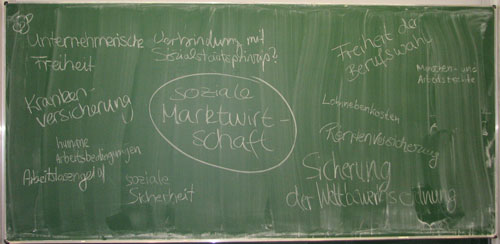 Unternehmerische
Freiheit
Verbindung mit
Sozialstaatsprinzip?
Freiheit der
Berufswahl
Menschen- und
Arbeitsrechte
Kranken-
versicherung
soziale
Marktwirt-
schaft
Lohnnebenkosten
Rentenversicherung
humane
Arbeitsbedingungen
Arbeitslosengeld
soziale
Sicherheit
Sicherung
der Wettbewerbsordnung